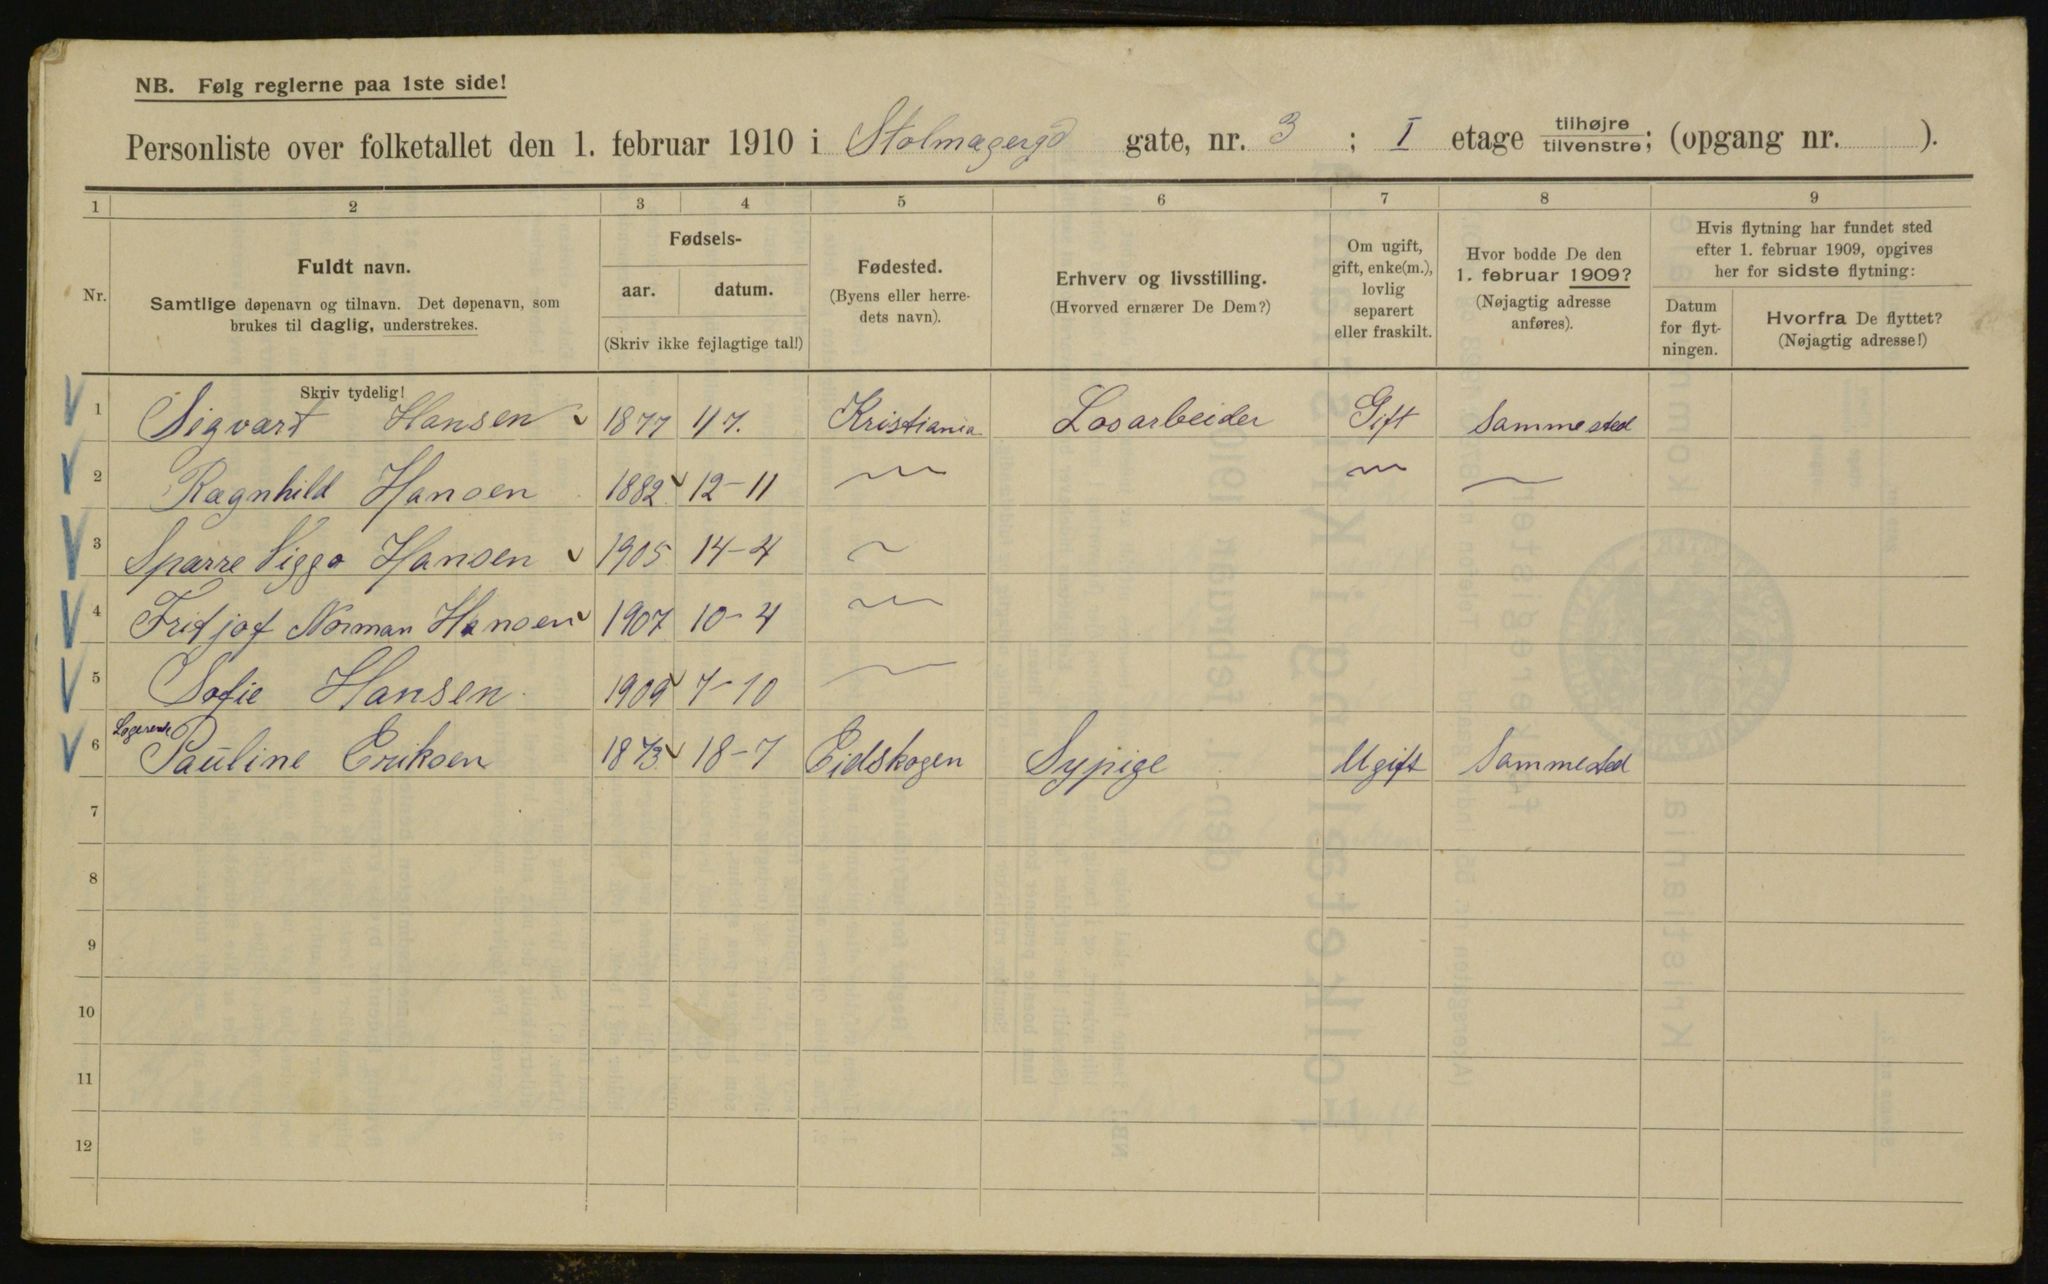 NB. Følg reglerne paa 1ste side!
Personliste over folketallet den 1. februar 1910 i Stolmagergd gate, nr. 3 ; I etage tilhøjre tilvenstre; (opgang nr. ).
1 2 3 4 5 6 7 8 9
Nr.
Fuldt navn.
Samtlige døpenavn og tilnavn. Det døpenavn, som
brukes til daglig, understrekes.
Fødsels-
aar. datum.
(Skriv ikke fejlagtige tal!)
Fødested.
(Byens eller herre-
dets navn).
Erhverv og livsstilling.
(Hvorved ernærer De Dem?)
Om ugift,
gift, enke(m.),
lovlig
separert
eller fraskilt.
Hvor bodde De den
1. februar 1909?
(Nøjagtig adresse
anføres).
Hvis flytning har fundet sted
efter 1. februar 1909, opgives
her for sidste flytning:
Datum
for flyt-
ningen.
Hvorfra De flyttet?
(Nøjagtig adresse!)
Skriv tydelig!
1 Sigvart Hansen 1877 Kristiania Losarbeider Gift Sammested
2 Ragnhild Hansen 1882 12-11 〃 〃 〃
3 Sparre Viggo Hansen 1905 14-4 〃
4 Fritjof Norman Hansen 1907 10-4 〃
5 Sofie Hansen 1909 7-10 〃
Logerende
6 Pauline Eriksen 1873 18-7 Eidskogen Sypige Ugift Sammested
7
8
9
10
11
12